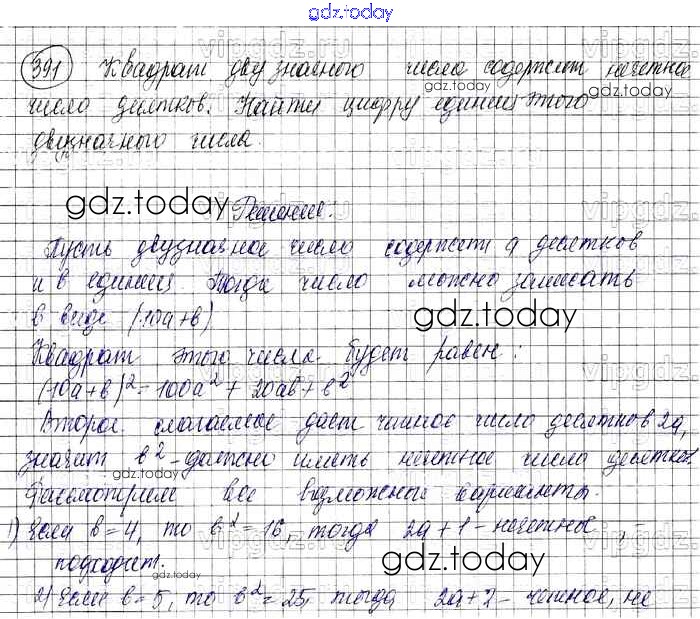 gdz.today
391 Квадрат двузначного числа содержит нечетное
число десятков. Найти цифру единиц этого
двузначного числа.
gdz.today
gdz.today
Решение.
Пусть двузначное число содержит a десятков
и в единиц. Тогда число можно записать
в виде (10a+в)
gdz.today
Квадрат этого числа будет равен:
(10a+в)²=100a²+20aв+в²
Второе слагаемое даст четное число десятков 2a,
значит в²-должно иметь нечетное число десятков.
gdz.today
Рассмотрим все возможные варианты.
1) Если в=4, то в²=16, тогда 2a+1-нечетное,
подходит.
gdz.today
gdz.today
2) Если в=5, то в²=25, тогда 2a+2- четное, не
vipgdz.ru